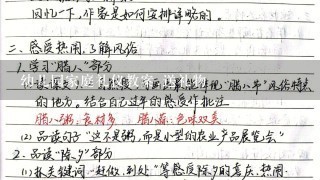 回忆一下,作家是如何安排详略的。
二、感受热闹,了解风俗
1.学习"腊八"部分
的地方。结合自己过年的感受作批注
腊八粥:食材多 腊八蒜:色味双美
(2)品读句子"这不是粥,而是小型的农业产品展览会"
2.品读"除夕"部分
(1)抓关键词"赶做、到处"等感受除夕的喜庆、热闹